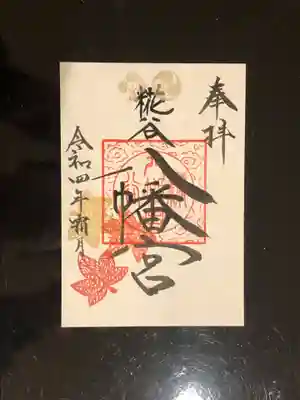 奉拝
糀谷
八幡宮
令和四年霜月